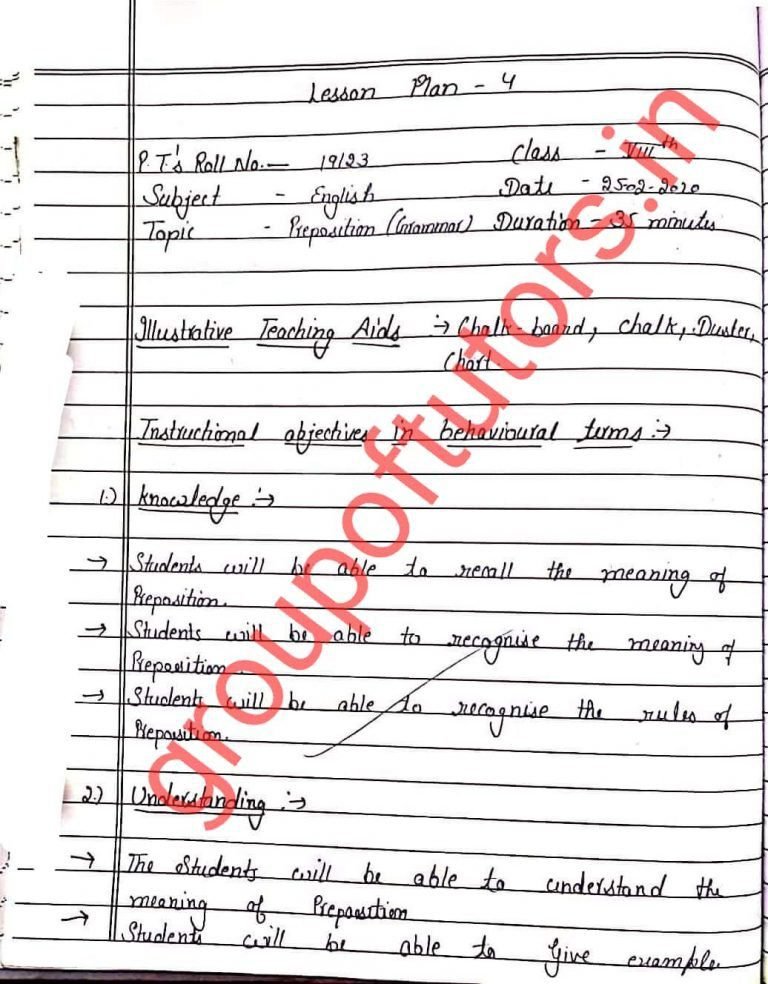 Lesson Plan - 4
P.T.'s Roll No. — 19/23 Class - VIIIth
Subject - English Date - 25-02-2020
Topic - Preposition (Grammar) Duration - 35 minutes
Illustrative Teaching Aids :→ Chalk-board, chalk, Duster,
Chart
Instructional objectives in behavioural terms :→
1.) Knowledge :→
→ Students will be able to recall the meaning of
Preposition.
→ Students will be able to recognise the meaning of
Preposition.
→ Students will be able to recognise the rules of
Preposition.
2.) Understanding :→
→ The Students will be able to understand the
meaning of Preposition
→ Students will be able to Give example
groupoftutors.in